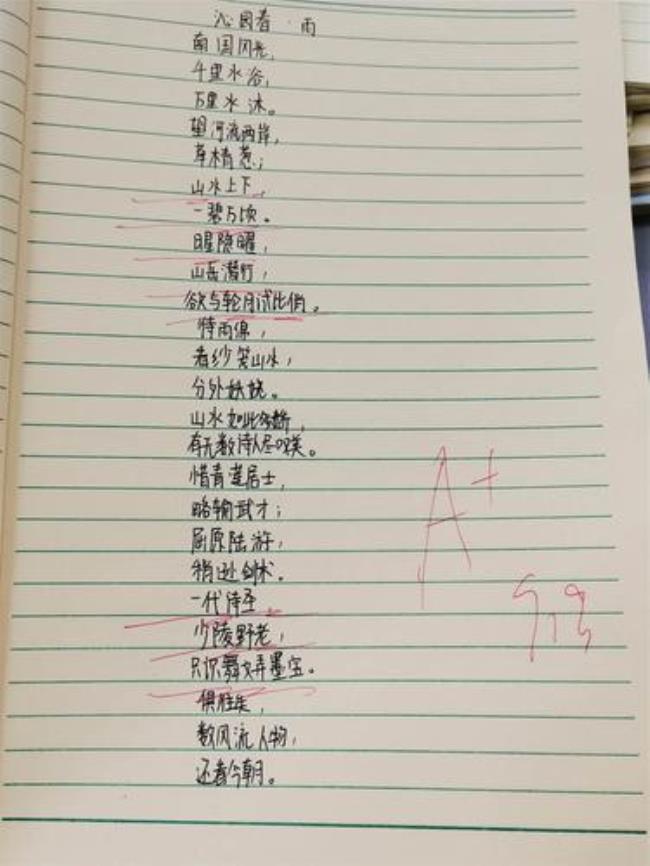 沁园春·雨
南国风光,
千里水浴,
万里水沐。
望河流两岸,
草木精葱;
山水上下,
一碧万顷。
日星隐曜,
山岳潜行,
欲与轮月试比俏。
待雨像,
看纱笼山水,
分外妖娆。
山水如此多娇,
有无数诗人尽叹笑。
惜青莲居士,
略输武才;
屈原陆游,
稍逊剑术。
一代诗圣,
少陵野老,
只识舞文弄墨宝。
俱往矣,
数风流人物,
还看今朝。
A+